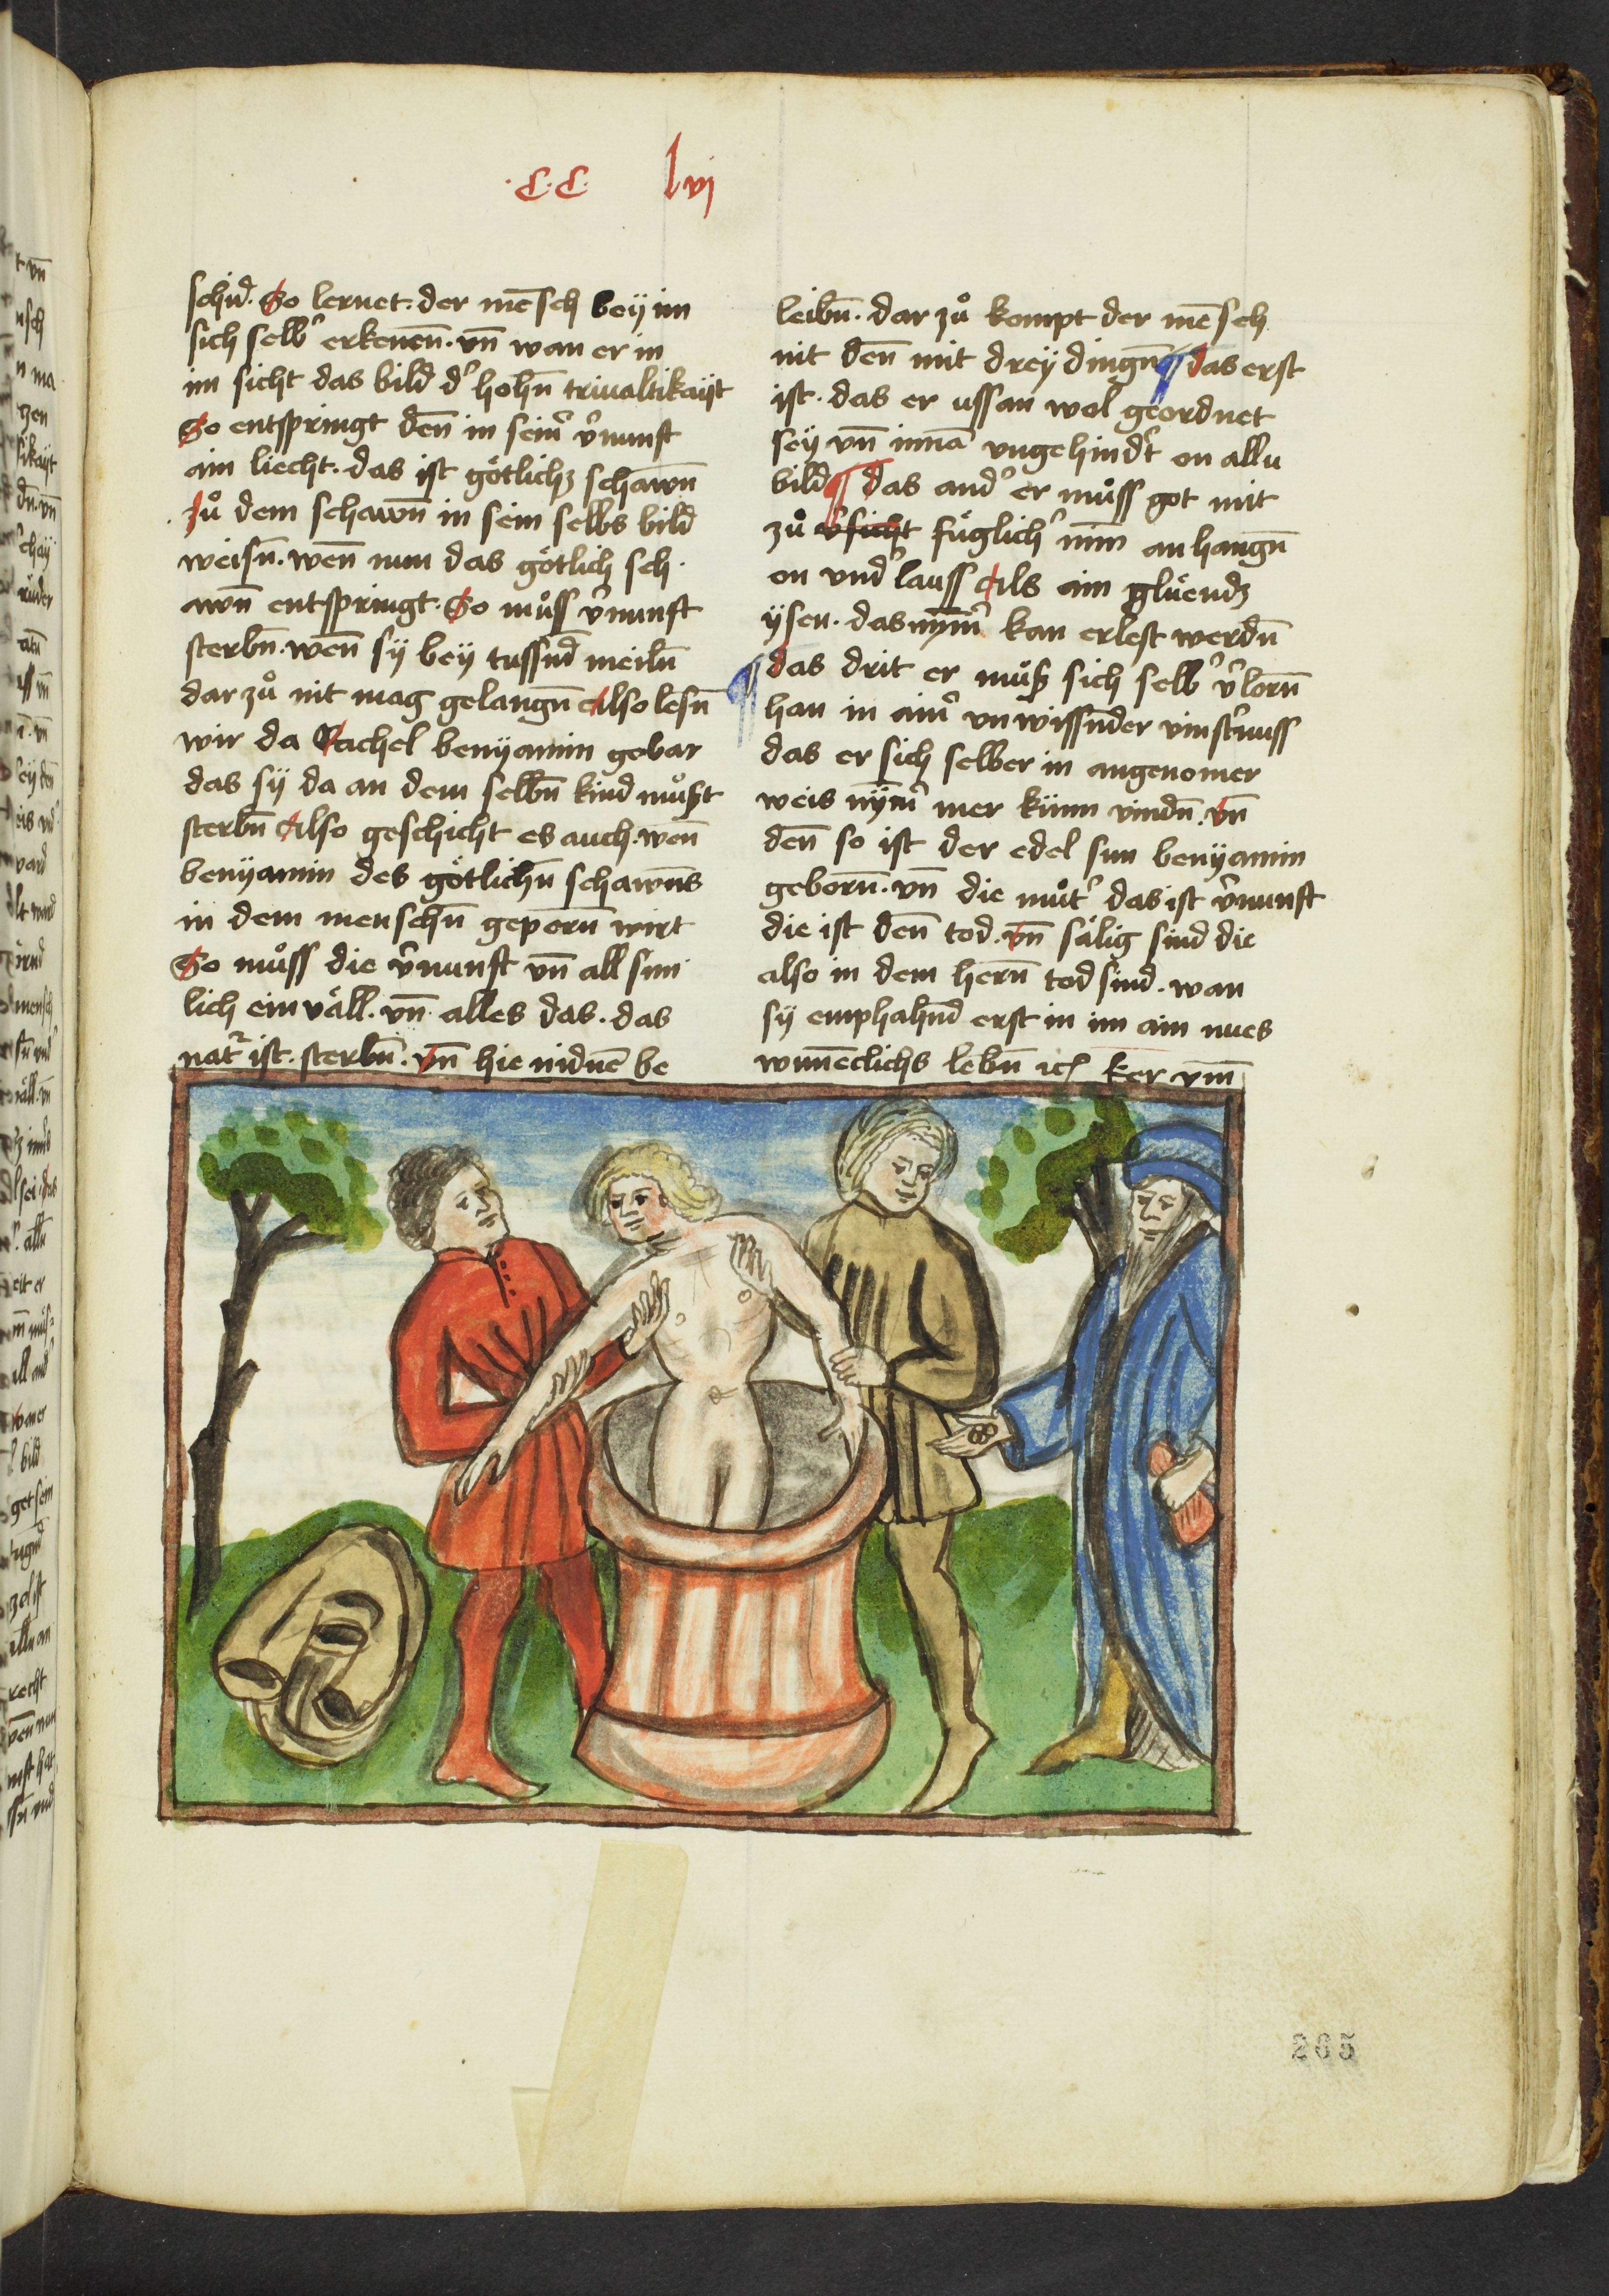 ·C·C· lvj
schid̄. So lernet. der mē sch bey im
sich selb' erkenen̄. vn̄ wan er in
im sicht das bild d' hohn̄ triualtikayt
So entspringt den̄ in seim' v'nunft
ain liecht. das ist götlichz schawn̄
zů dem schawn̄ in sein selbs bild
weisn̄. wen̄ nun das götlich sch
awn̄ entspringt. So můss v'nunft
sterbn̄. wen̄ sy bey tussnd̄ meiln̄
dar zů nit mag gelangn̄ Also lesn̄
wir da Rachel benyamin gebar
das sy da an dem selbn̄ kind můßt
sterbn̄ Also geschicht es auch. wen̄
benyamin des götlichn̄ schawn̄s
in dem menschn̄ geporn̄ wirt
So můss die v'nunft vn̄ all sin
lich ein väll. vn̄ alles das. das
nat' ist. sterbn̄. vn̄ hie nidnē be
leibn̄. dar zů kompt der mē sch
nit den̄ mit drey dingn̄ ¶ das erst
ist. das er ussan wol geordnet
sey vn̄ innā ungehind't on allu
bild ¶ das and' er můss got mit
zů v'sicht füglich' mīn an hangn̄
on vnd' lauss Als ain glüendz
ysen. das nym̄' kan erlest werdn̄
¶ das drit er můß sich selb' v'lorn̄
han in aim' vnwissnd̄er vinst'nuss
das er sich selber in angenomer
weis nym̄' mer künn vindn̄. vn̄
den̄ so ist der edel sun benyamin
geborn̄. vn̄ die můt' das ist v'nunft
die ist den̄ tod. vn̄ sälig sind die
also in dem hern̄ tod sind. wan
sy emphahnd̄ erst in im ain nues
wunēclichs lebn̄ ker vm̄
265